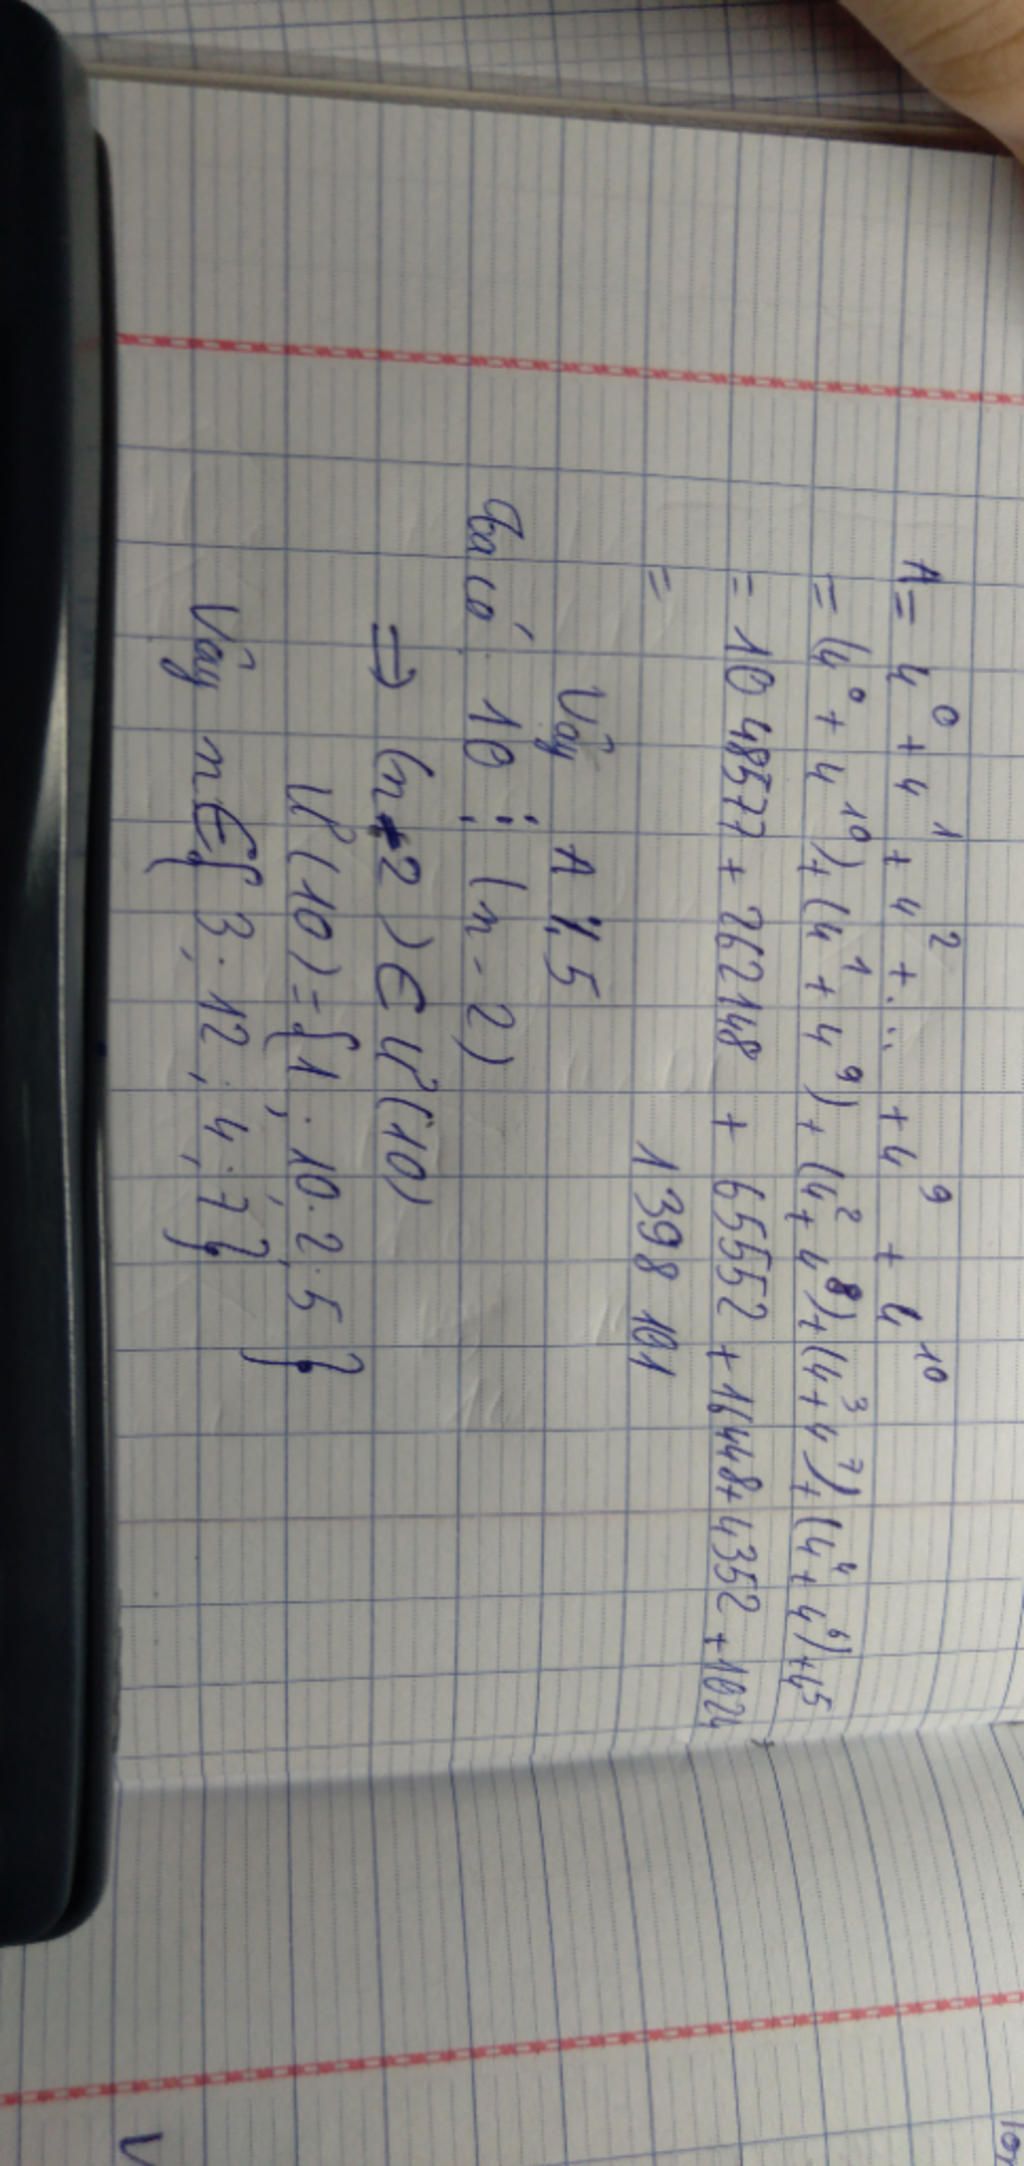 A = 4⁰ + 4¹ + 4² + ... + 4⁹ + 4¹⁰
= (4⁰ + 4¹⁰) + (4¹ + 4⁹) + (4² + 4⁸) + (4³ + 4⁷) + (4⁴ + 4⁶) + 4⁵
= 10 48577 + 262148 + 65552 + 16448 + 4352 + 1024
= 1398 101
Vậy A ⋮̸ 5
Ta có: 10 ⋮ (n - 2)
=> (n - 2) ∈ Ư(10)
Ư(10) = {1; 10; 2; 5}
Vậy n ∈ {3; 12; 4; 7}
V